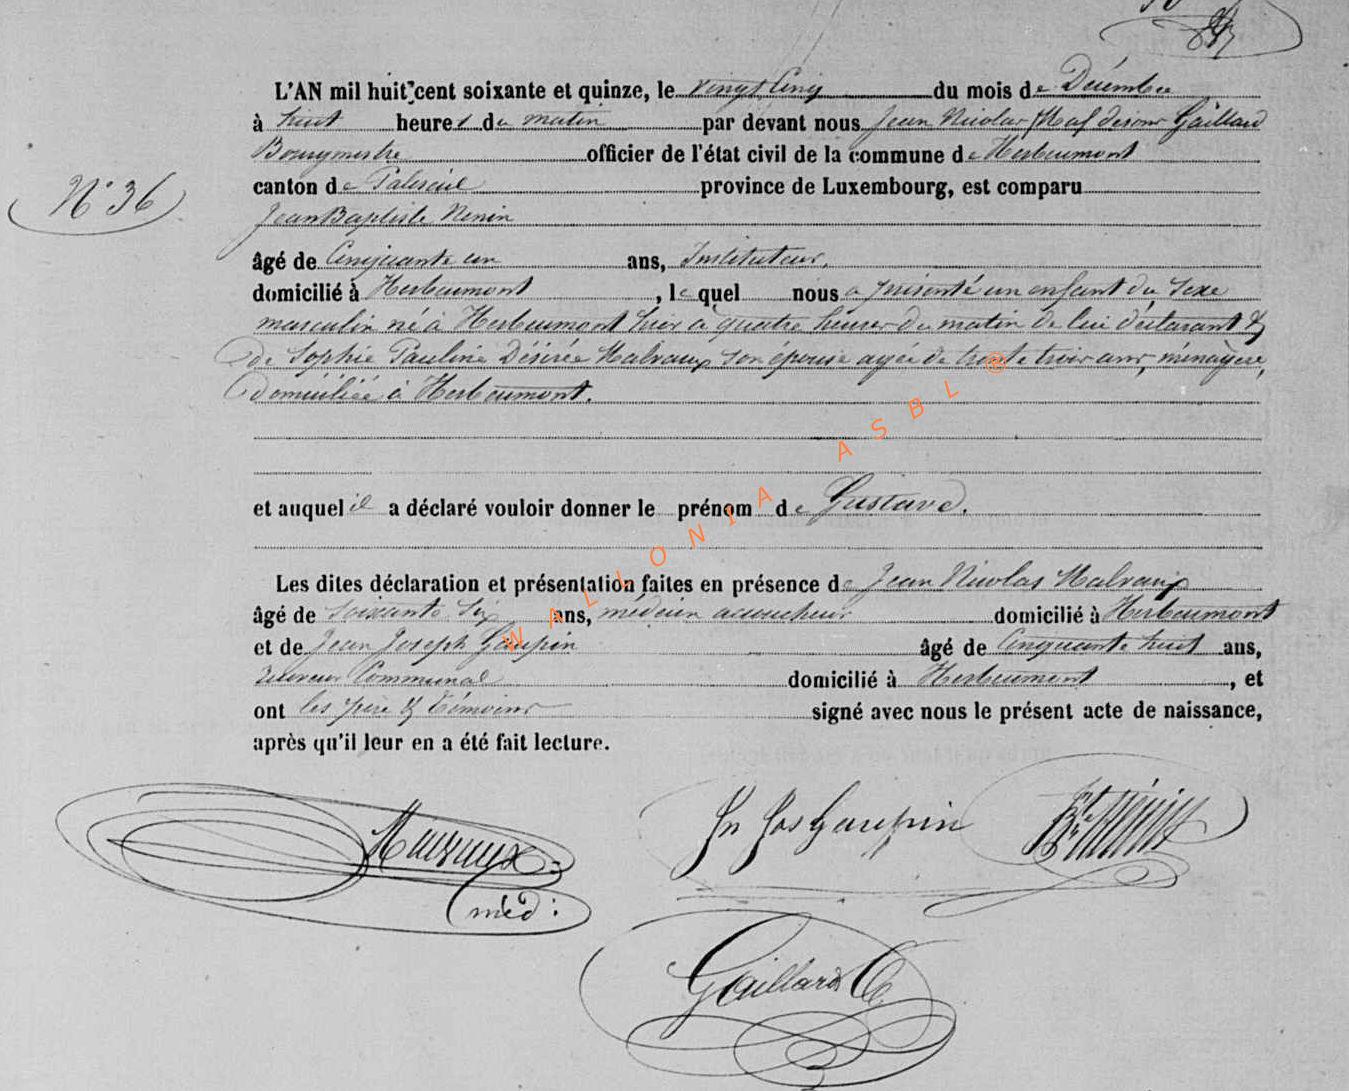 N° 36
L'AN mil huit cent soixante et quinze, le vingt Cinq du mois de Décembre
à huit heures du matin par devant nous Jean Nicolas Gaillard
Bourgmestre officier de l'état civil de la commune de Herbeumont
canton de Paliseul province de Luxembourg, est comparu
Jean Baptiste Nenin
âgé de Cinquante un ans, Instituteur,
domicilié à Herbeumont, lequel nous a présenté un enfant du Sexe
masculin né à Herbeumont hier à quatre heures du matin de lui déclarant &
de Sophie Pauline Désirée Malvaux son épouse agée de trente trois ans, ménagère,
domiciliée à Herbeumont.
et auquel il a déclaré vouloir donner le prénom de Gustave.
Les dites déclaration et présentation faites en présence de Jean Nicolas Malvaux
âgé de soixante Six ans, médecin accoucheur domicilié à Herbeumont
et de Jean Joseph Gaupin âgé de Cinquante huit ans,
receveur Communal domicilié à Herbeumont, et
ont les père & témoins signé avec nous le présent acte de naissance,
après qu'il leur en a été fait lecture.
Malvaux
méd:
Jn Jos Gaupin
Bte Nénin
Gaillard
WALLONIA ASBL ®